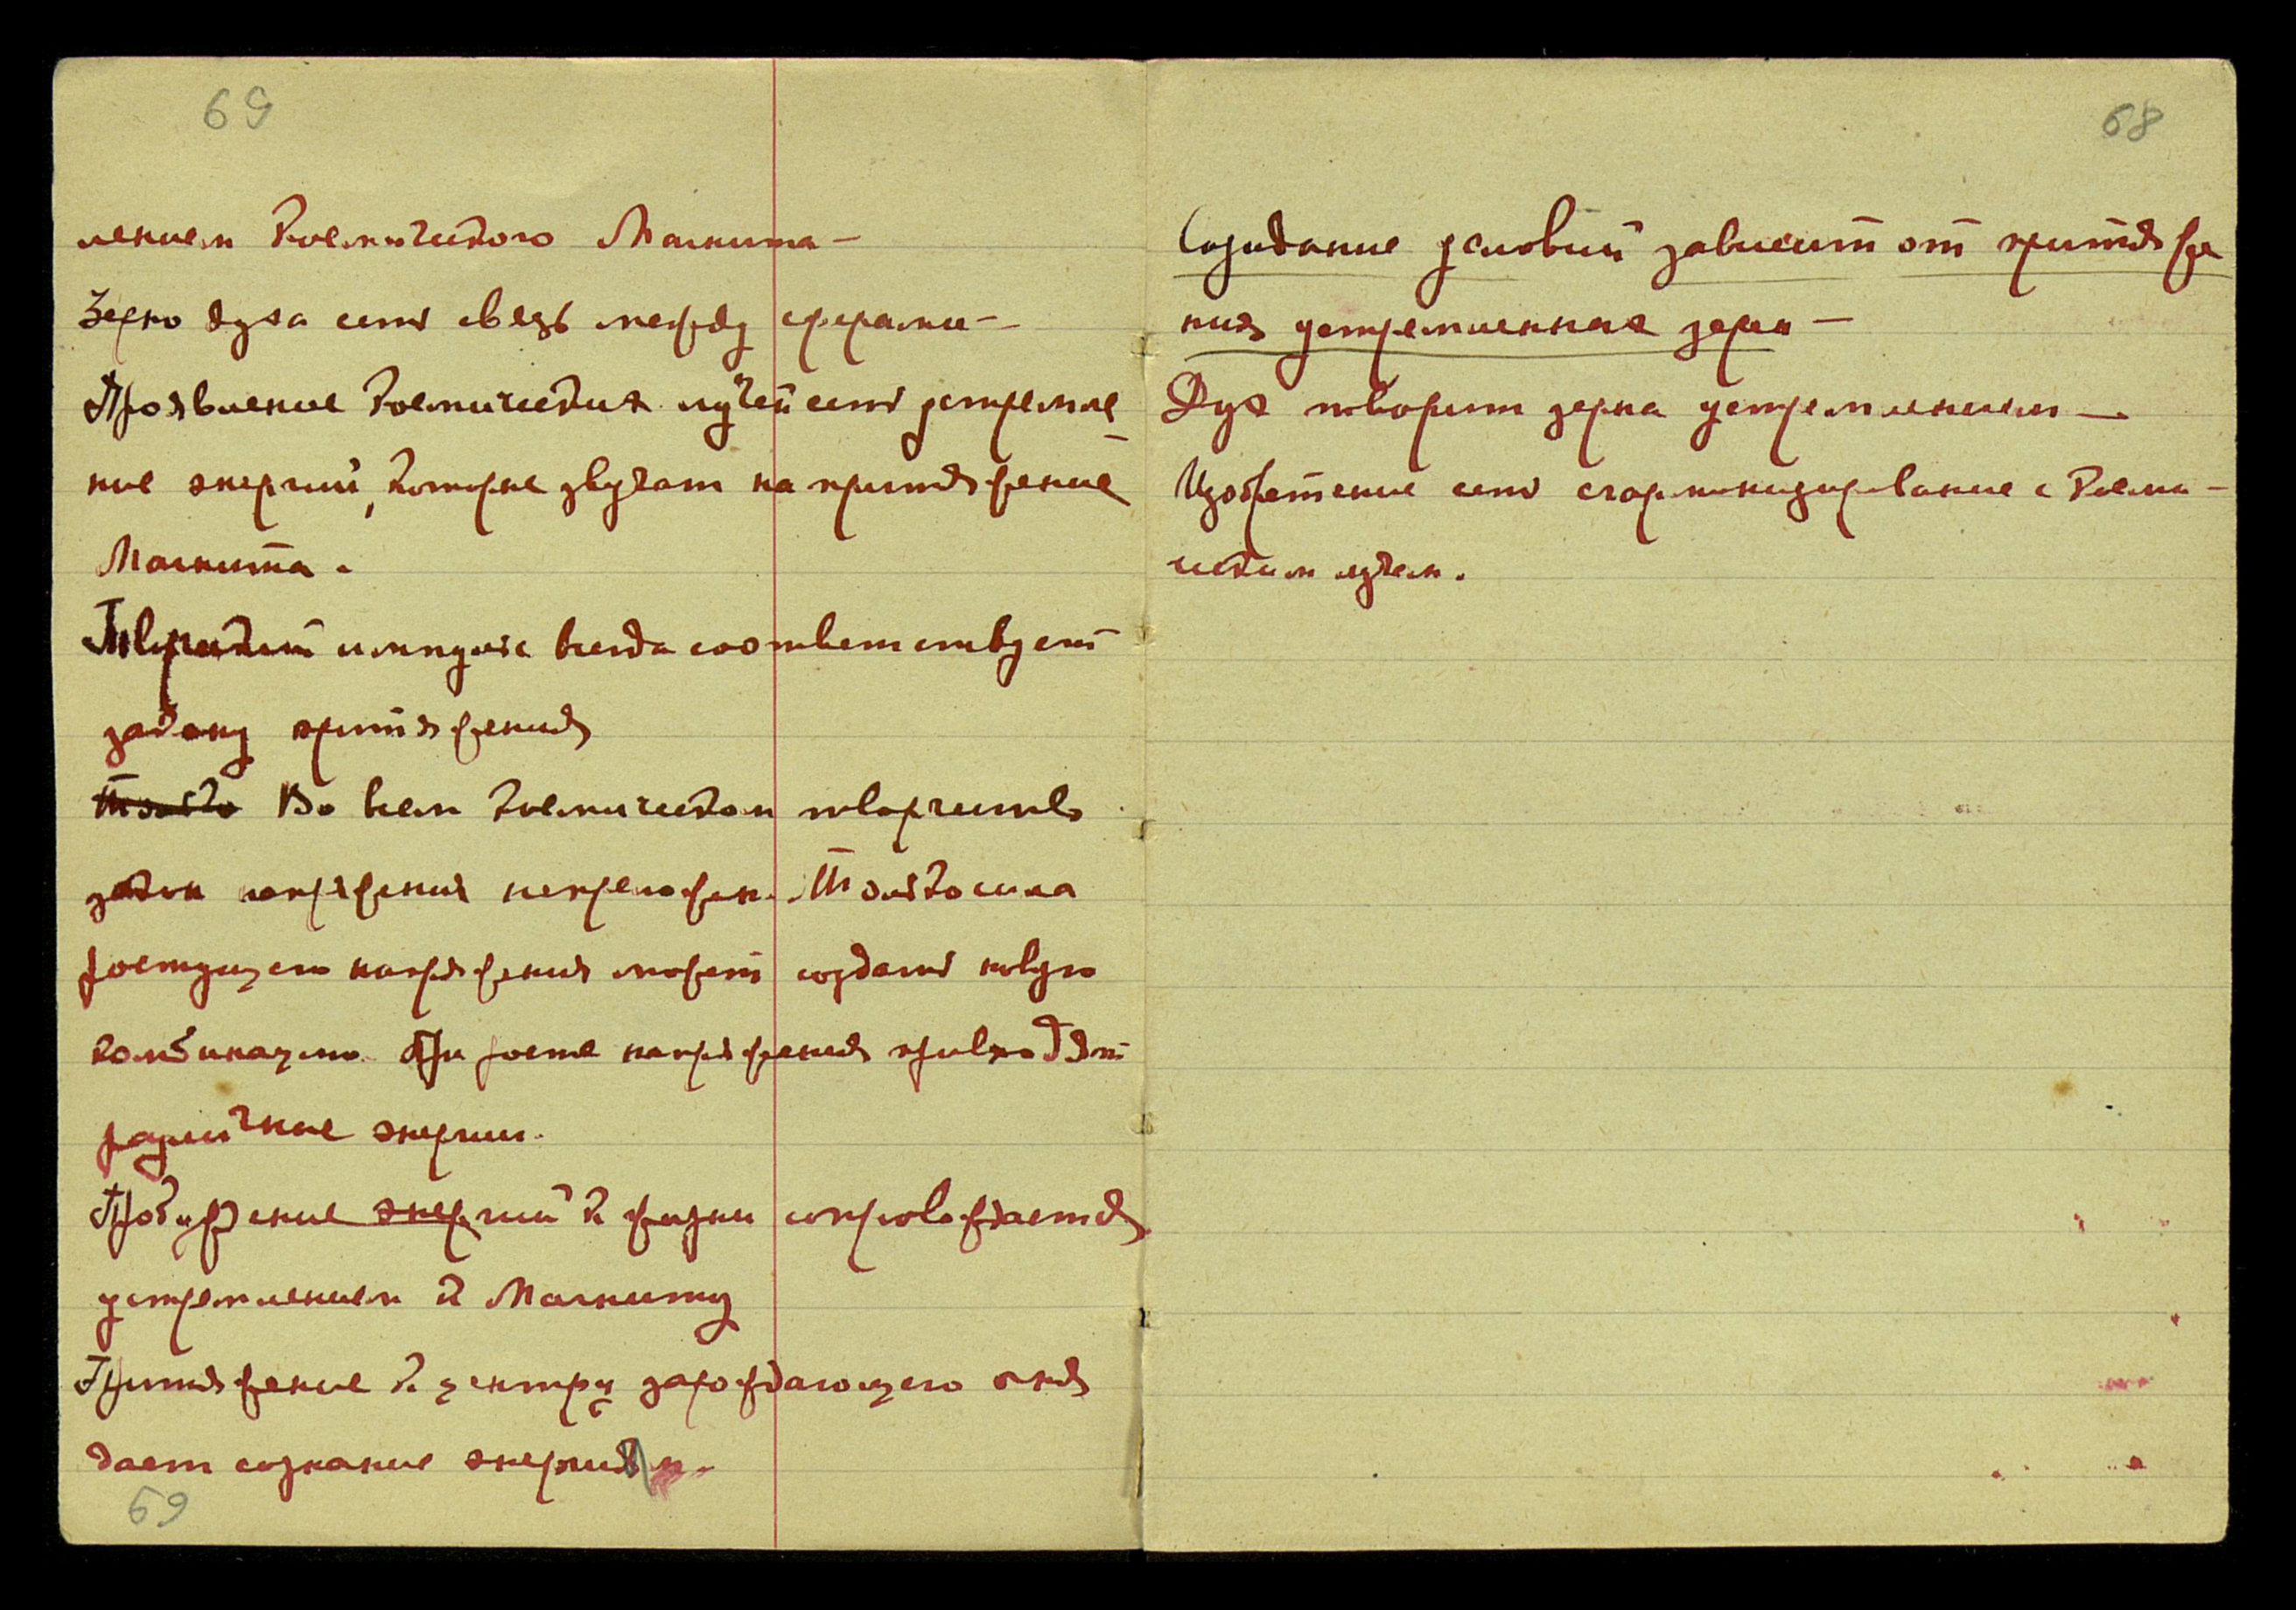 69
лением Космического Магнита —
Зерно духа есть связь между сферами —
Проявление космических лучей есть устремле
ние энергий, которые звучат на притяжение
Магнита.
Творческий импульс всегда соответствует
закону притяжения
Только Во всем космическом творчестве
закон напряжения непреложен. Только сила
растущего напряжения может создать новую
комбинацию. При росте напряжения привходят
различные энергии.
Пробуждение энергий к жизни сопровождается
устремлением к Магниту
Притяжение к центру зарождающего огня
дает сознание энергиям.
69
68
Созидание условий зависит от притяже
ния устремленных зерен —
Дух творит зерна устремлением —
Изобретение есть сгармонизирование с Косми-
ческим лучем.